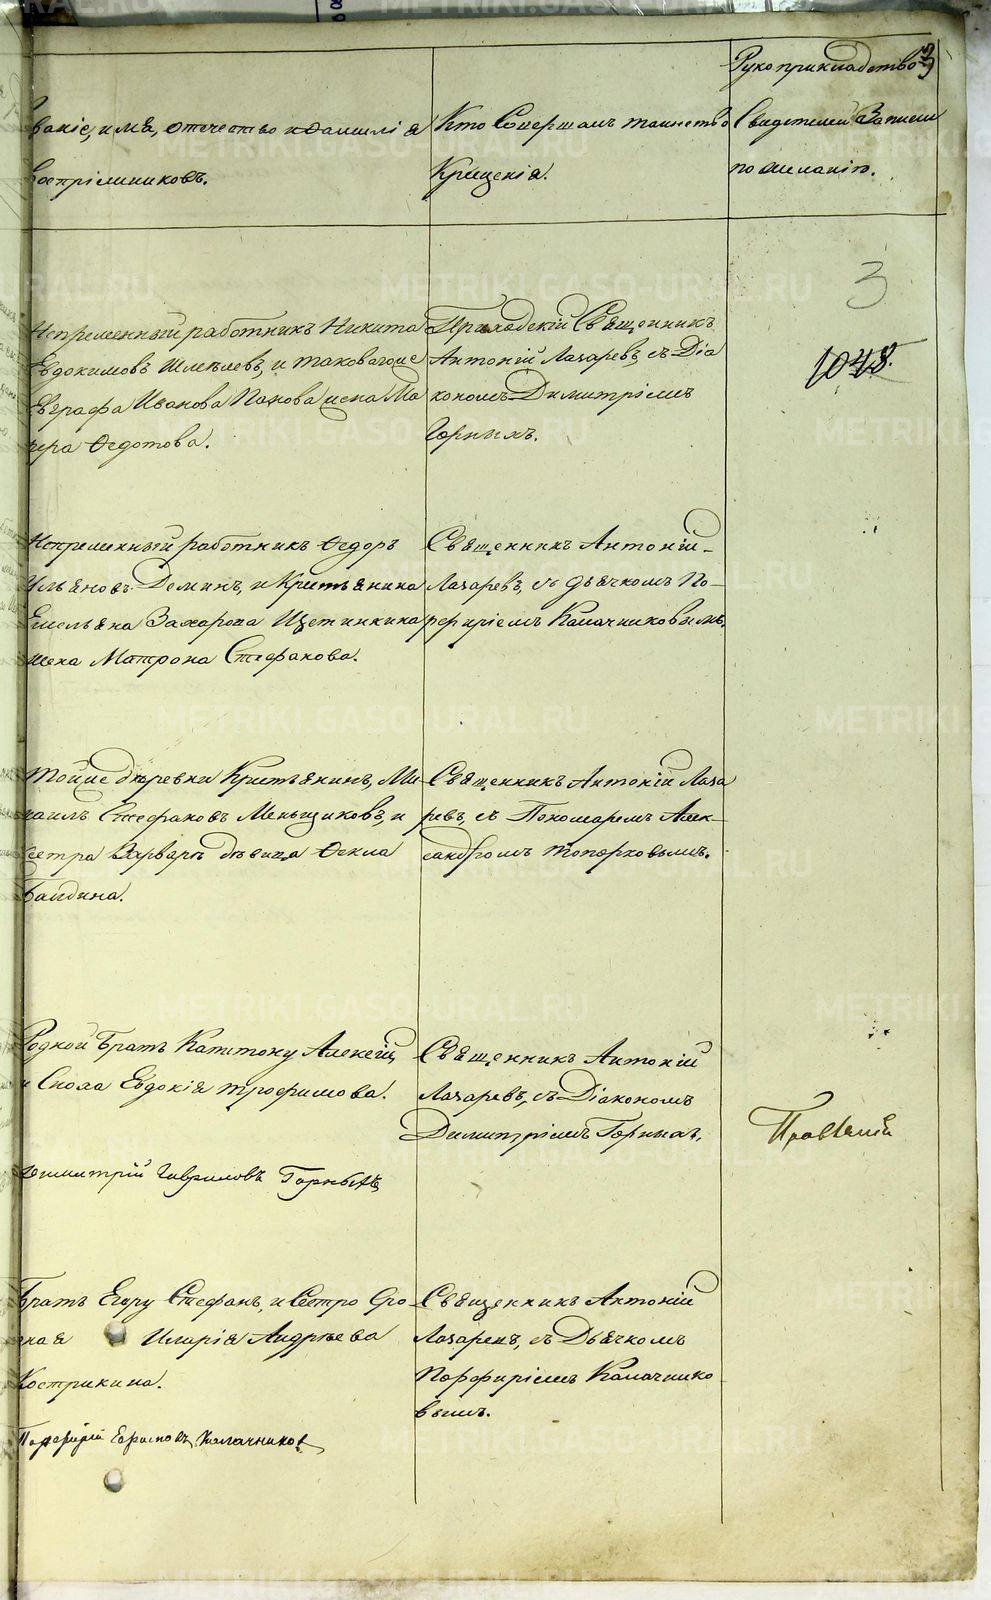 Рукоприкладство
Званіе, имя, отечество и фамилія
Воспріемниковъ.
Кто Совершалъ таинство
Крещенія.
Свидетелей Записи
по желанію.
3
1048.
Непременный работникъ Никита
Евдокимовъ и таковагоже
Евграфа Иванова Панова жена Ма
вра Ѳедотова.
Приходскій Священникъ
Антоній Лазаревъ, съ Діа
кономъ Димитріемъ
Горныхъ.
Непременный работникъ Ѳедоръ
Ульяновъ Деминъ, и Крестьянина
Емельяна Захарова Щетинкина
жена Матрона Стефанова.
Священникъ Антоній
Лазаревъ, съ дьячкомъ По
рфиріемъ Калачниковымъ.
Тойже деревни Крестьянинъ, Ми
хаилъ Стефановъ Меньщиковъ, и
сестра Варваръ девица Ѳекла
Байдина.
Священникъ Антоній Лаза
ревъ, съ Пономаремъ Алек
сандромъ Топорковымъ.
Родной Братъ Капитону Алексій
и Сноха Евдокія Трофимова.
Димитрій Гавриловъ Горныхъ
Священникъ Антоній
Лазаревъ, съ Діакономъ
Димитріемъ Горныхъ.
Братъ Егору Стефанъ, и Сестра
Марія Андреева
Кострикина.
Порфирій Калачниковъ
Священникъ Антоній
Лазаревъ, съ Дьячкомъ
Порфиріемъ Калачнико
вымъ.
METRIKI.GASO-URAL.RU